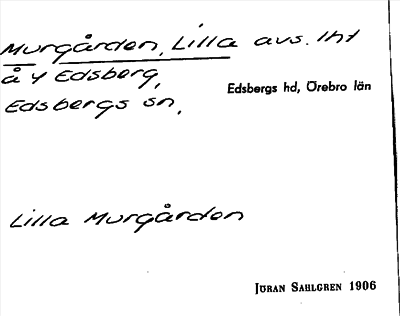 Murgården, Lilla avs. lht
å 4 Edsberg,
Edsbergs hd, Örebro län
Edsbergs sn,
Lilla Murgården
JÖRAN SAHLGREN 1906